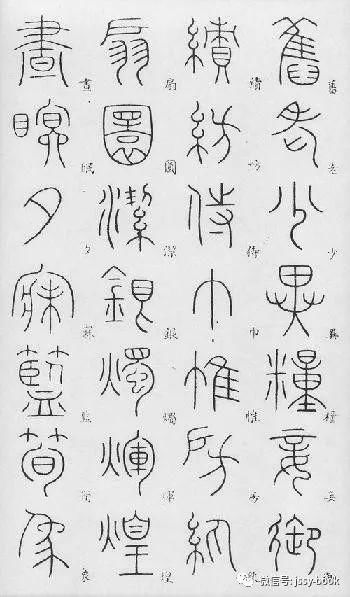 舊老少異糧妾御
績紡侍巾帷房紈
扇圓潔銀燭煒煌
晝眠夕寐藍筍象
微信号: jssy-book